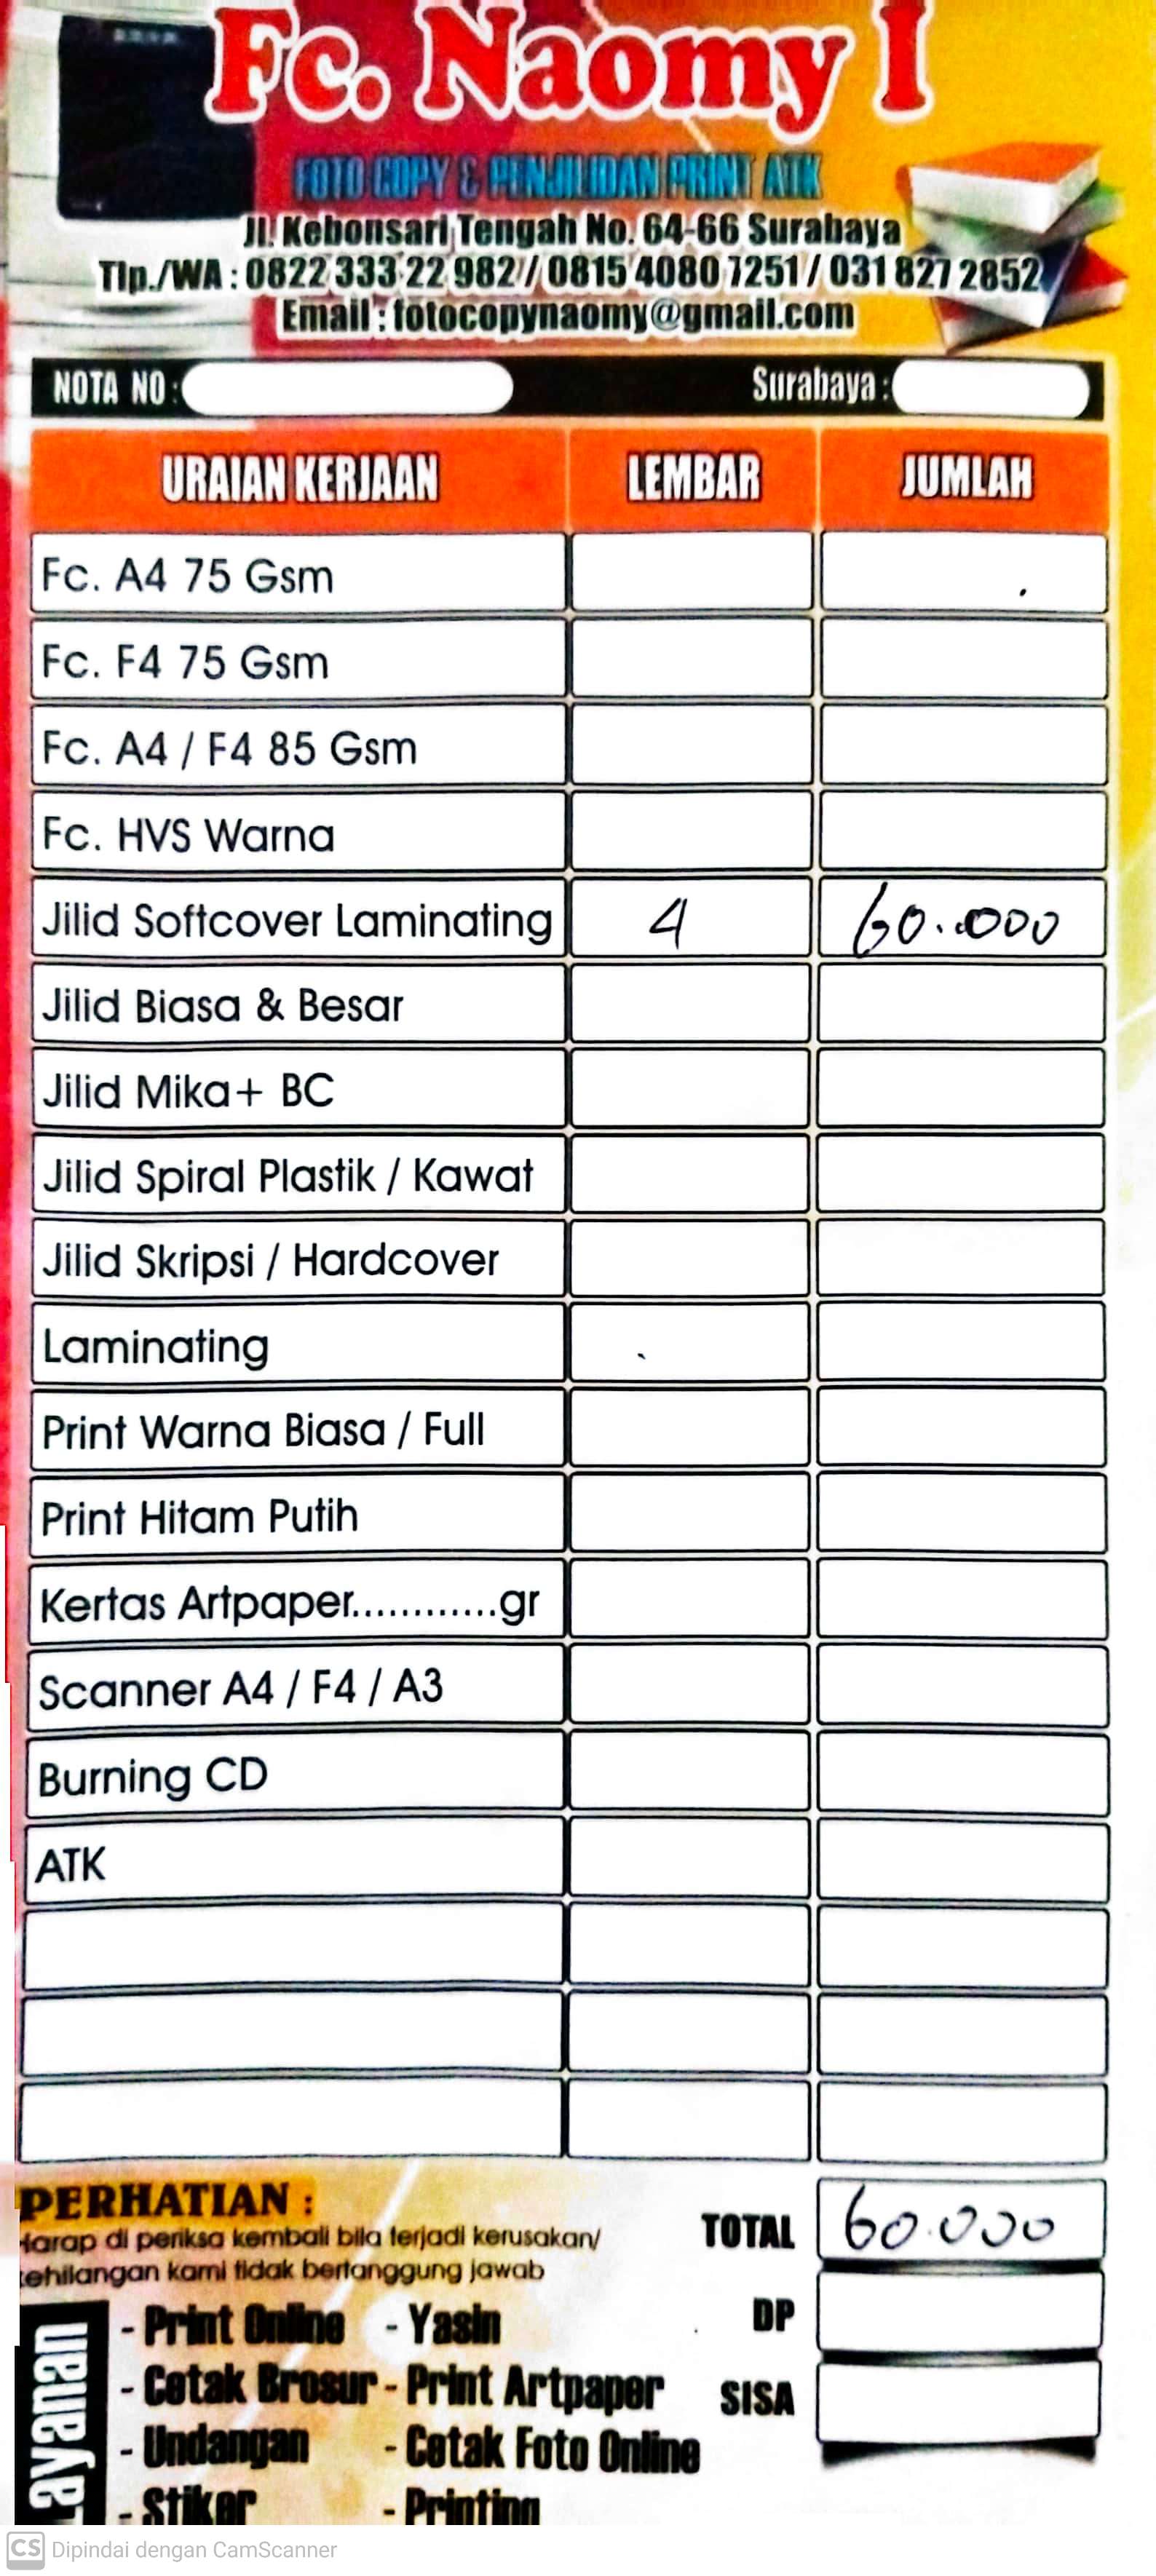 Fc. Naomy I
FOTO COPY & PENJILIDAN PRINT ATK
Jl. Kebonsari Tengah No. 64-66 Surabaya
Tlp./WA : 0822 333 22 982 / 0815 4080 7251 / 031 827 2852
Email : fotocopynaomy@gmail.com
NOTA NO : Surabaya :
URAIAN KERJAAN LEMBAR JUMLAH
Fc. A4 75 Gsm
Fc. F4 75 Gsm
Fc. A4 / F4 85 Gsm
Fc. HVS Warna
Jilid Softcover Laminating 4 60.000
Jilid Biasa & Besar
Jilid Mika+ BC
Jilid Spiral Plastik / Kawat
Jilid Skripsi / Hardcover
Laminating
Print Warna Biasa / Full
Print Hitam Putih
Kertas Artpaper............gr
Scanner A4 / F4 / A3
Burning CD
ATK
PERHATIAN :
Harap di periksa kembali bila terjadi kerusakan/
kehilangan kami tidak bertanggung jawab
TOTAL 60.000
DP
SISA
Layanan
- Print Online - Yasin
- Cetak Brosur - Print Artpaper
- Undangan - Cetak Foto Online
- Stiker - Printing
CS Dipindai dengan CamScanner